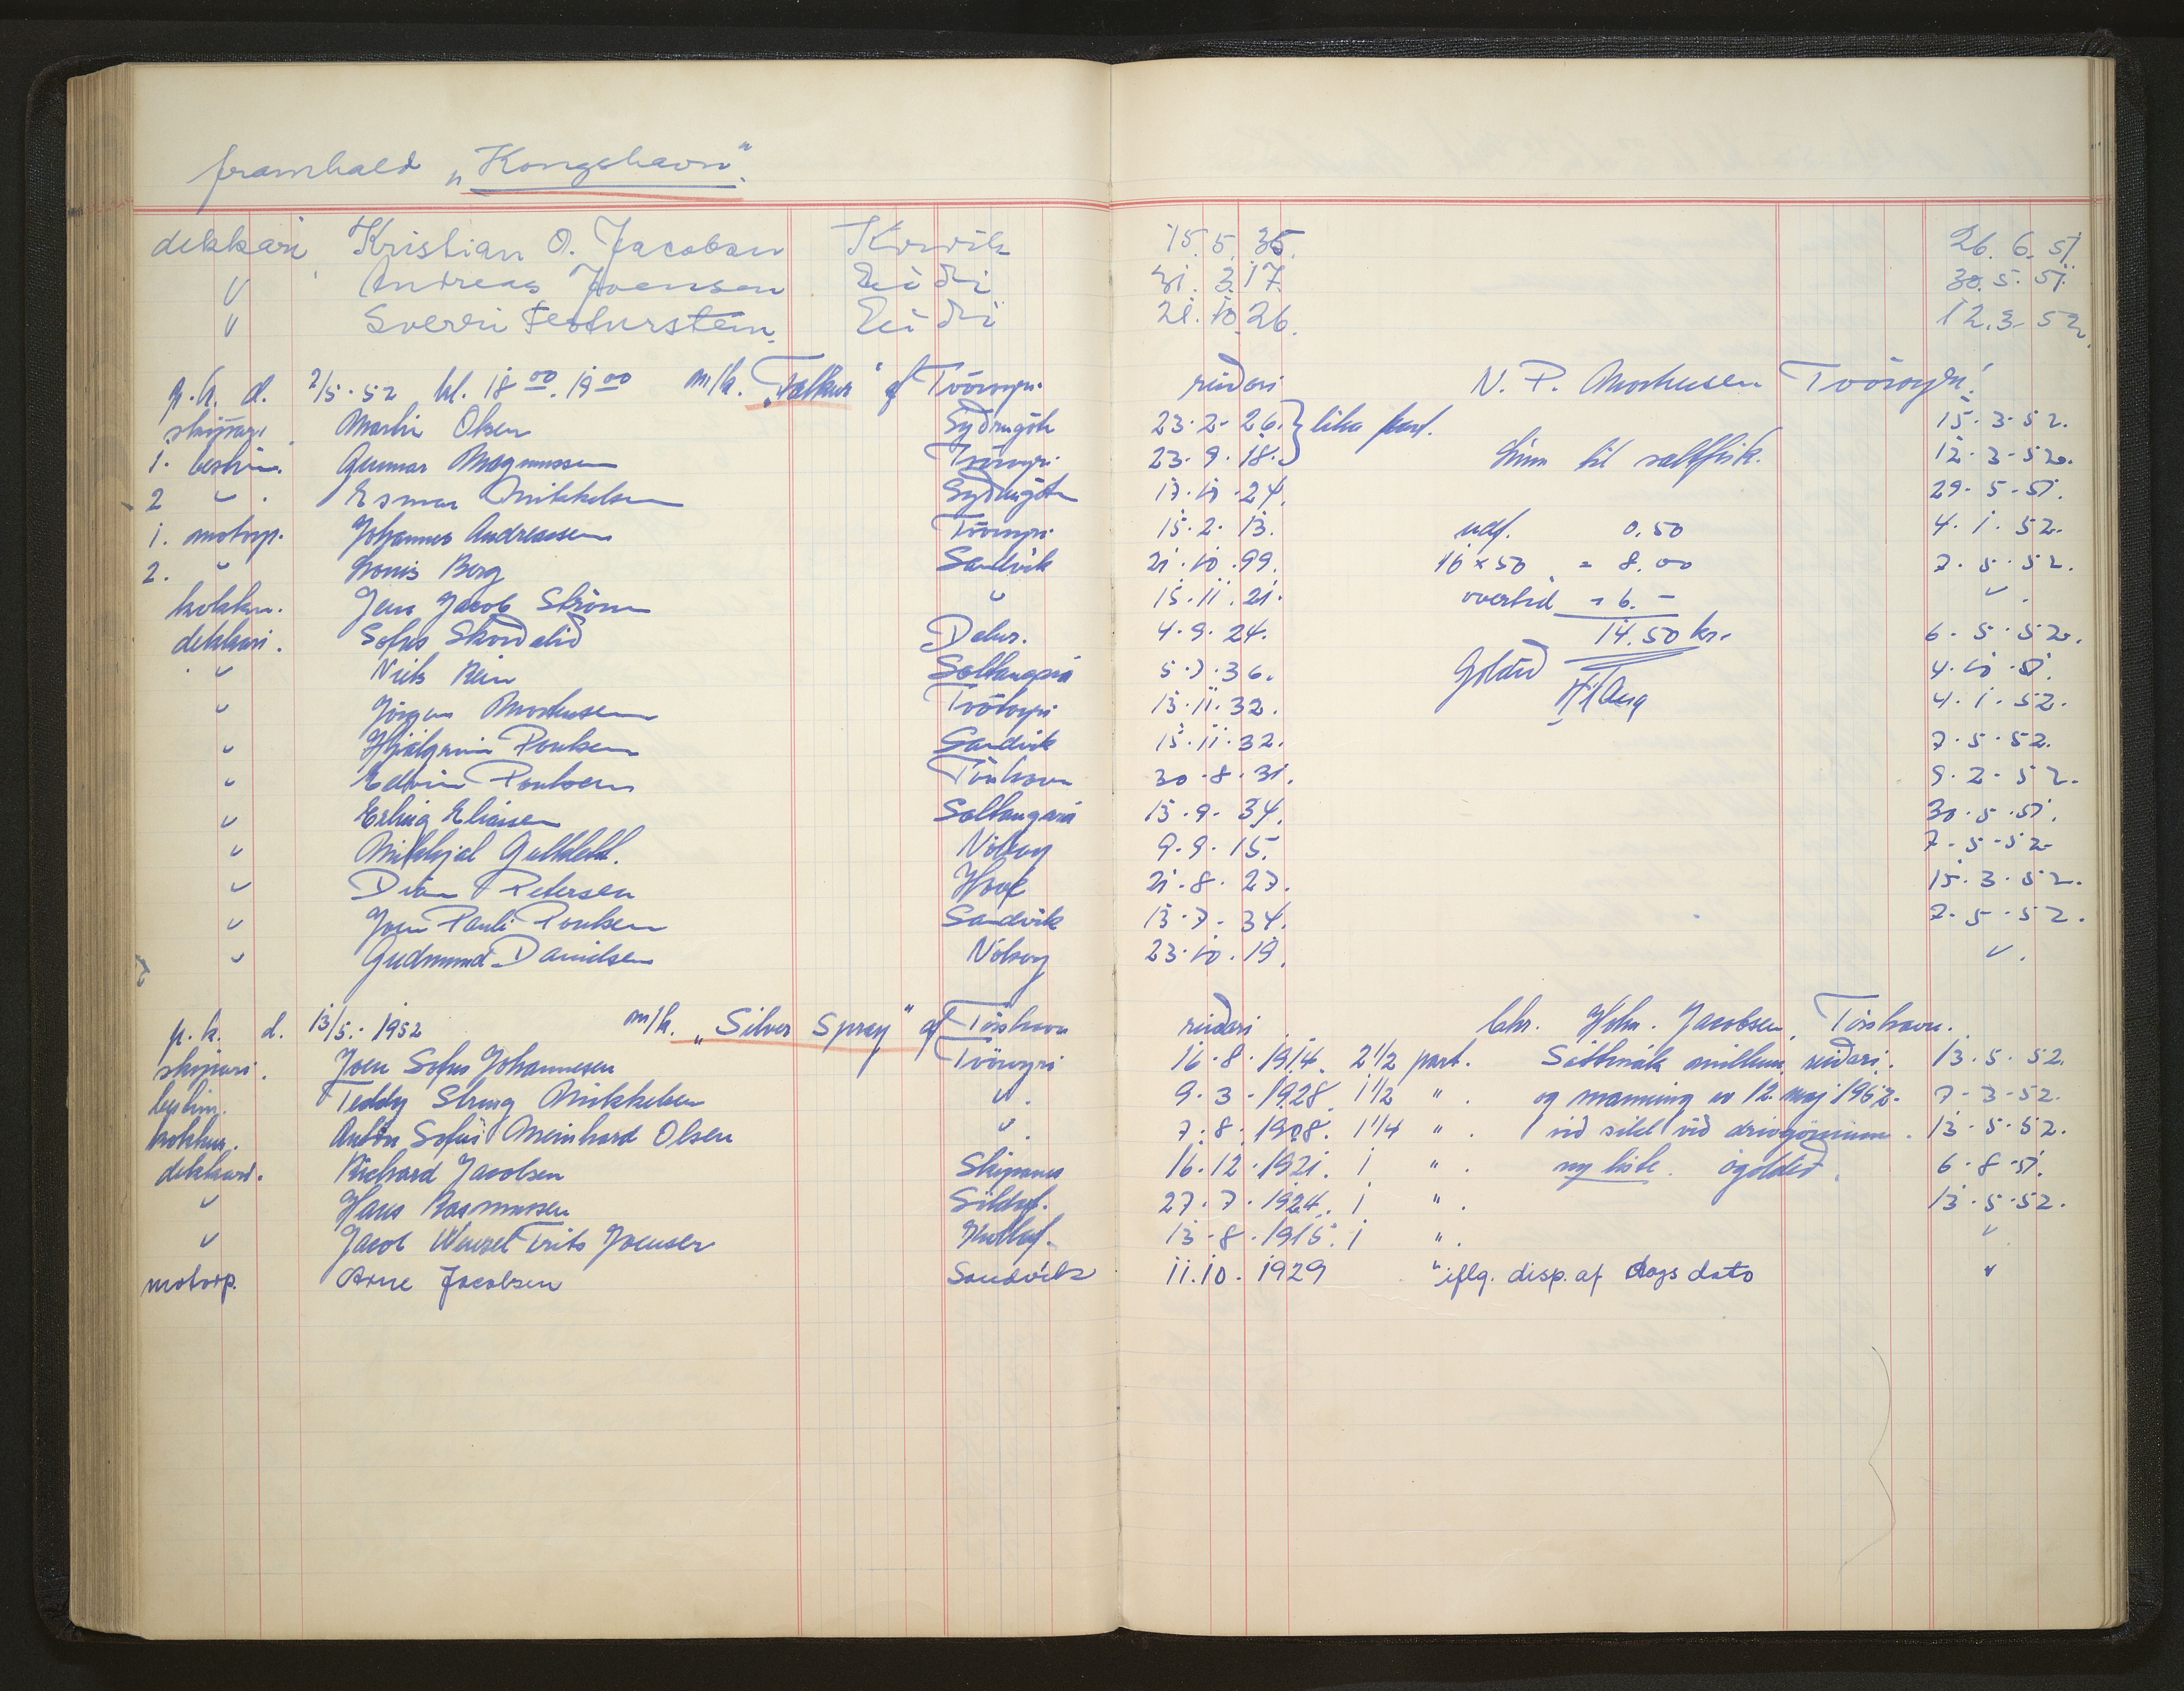 framhald „Kongshavn".
dekkari Kristian O. Jacobsen Kvívík 15. 5. 35. 26. 6. 51.
" Andreas Joensen Eiði 31. 3. 17. 30. 5. 51.
" Sverri Eiði 21. 10. 26. 12. 3. 52.
p.k. d. 2/5-52 kl. 18 00. 19 00 m/k. „Falkur" af Tvöroyri reiðari N. P. Morhusen Tvöroyri.
skipari Martin Olsen Syðrugöta 23. 2. 26. } lika part. 15. 3. 52.
1. bestim. Gunnar Magnussen Tvöroyri 23. 9. 18. } til saltfisk. 12. 3. 52.
2 " . Esmar Mikkelsen Syðrugöta 17. 10. 24. 29. 5. 51.
1. motorp. Johannes Andreassen Tvöroyri 15. 2. 13. udf. 0.50 4. 1. 52.
2. " Berg Sandvík 21. 10. 99. 16 x 50 = 8.00 7. 5. 52.
kokkur. Jens Jacob Ström " 15. 11. 21. overtid - 6. - " .
dekkari. Sofus Skorðalið Dalur. 4. 9. 24. 14.50 kr. 6. 5. 52.
" Niels Rein Saltangará 5. 7. 36. Goldið 4. 10. 51.
" Jörgen Morhusen Tvöroyri 13. 11. 32. 4. 1. 52.
" Hjálgrím Poulsen Sandvík 15. 11. 32. 7. 5. 52.
" Edvin Poulsen Tórshavn 30. 8. 31. 9. 2. 52.
" Erling Eliasen Saltangará 13. 9. 34. 30. 5. 51.
" Mikkjal Nólsoy 9. 9. 15. 7. 5. 52
" Petersen Hove 21. 8. 27. 15. 3. 52.
" Joen Pauli Poulsen Sandvík 13. 7. 34. 7. 5. 52.
" Gudmund Danielsen Nólsoy 23. 10. 19. " .
p.k. d. 13/5. 1952 m/k. „Silver Spray" af Tórshavn reiðari Chr. Holm. Jacobsen, Tórshavn.
skipari. Joen Sofus Johannesen Tvöroyri 16. 8. 1914. 2 1/2 part. Sáttmála millum reiðari. 13. 5. 52.
bestim. Teddy Strung Mikkelsen " . 9. 3. 1928. 1 1/2 " . og manning av 12. maj 1952. 7. 3. 52.
kokkur. Anton Sofus Meinhard Olsen " . 7. 8. 1908. 1 1/4 " . við sild við drivgörnum. 13. 5. 52.
dekkari. Richard Jacobsen Skipanes 16. 12. 1921. 1 " . ny liste. ógoldið. 6. 8. 51.
" Hans Rasmussen 27. 7. 1924. 1 " . 13. 5. 52.
" Jacob Wenzel Frits Joensen 13. 8. 1915. 1 " . "
motorp. Arne Jacobsen Sandvík 11. 10. 1929 " iflg. disp. af dags dato "